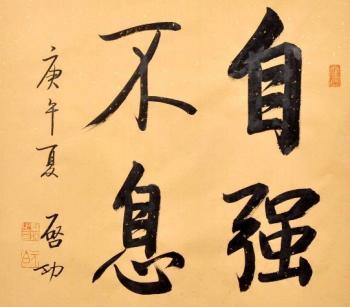 自强
不息
庚午夏
启功